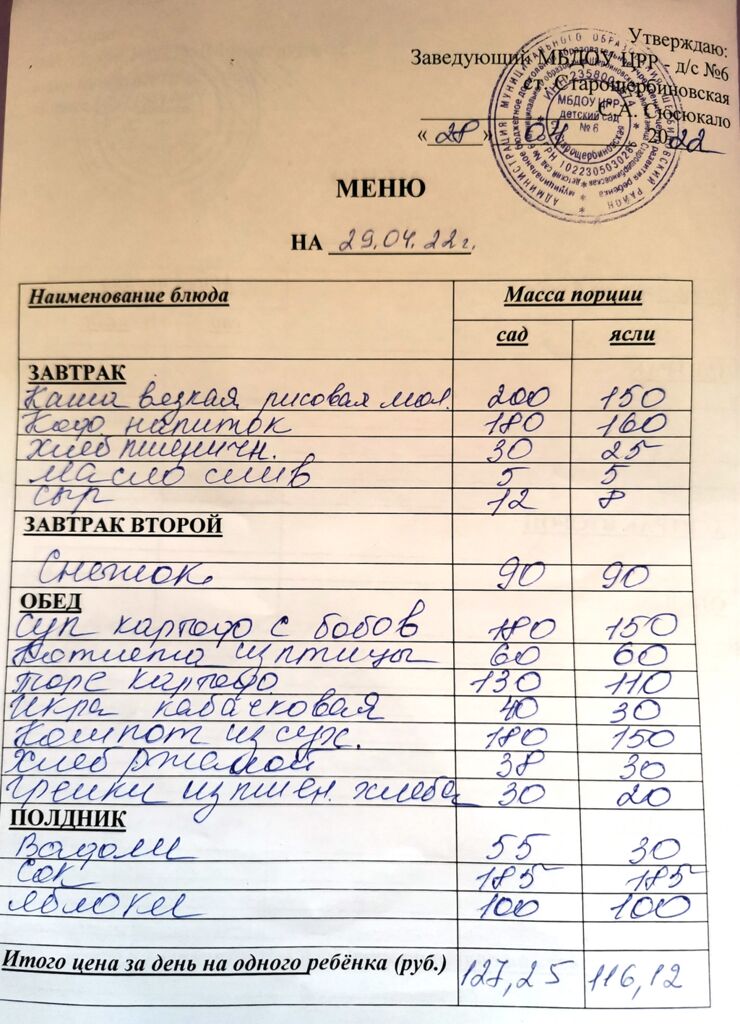 Утверждаю:
Заведующий МБДОУ ЦРР - д/с №6
ст. Старощербиновская
С. А. Сюсюкало
« 28 » 04 2022
МБДОУ ЦРР
детский сад
№ 6
МЕНЮ
НА 29.04.22г.
Наименование блюда Масса порции
сад ясли
ЗАВТРАК
Каша вязкая рисовая мол. 200 150
Кофе напиток 180 160
Хлеб пшеничн. 30 25
Масло слив 5 5
Сыр 12 8
ЗАВТРАК ВТОРОЙ
Снежок 90 90
ОБЕД
Суп картоф с бобов 180 150
Котлета из птицы 60 60
Пюре картоф. 130 110
Икра кабачковая 40 30
Компот из сух. 180 150
Хлеб ржаной 38 30
Гренки из пшен. хлеба 30 20
ПОЛДНИК
Вафли 55 30
Сок 185 185
Яблоки 100 100
Итого цена за день на одного ребёнка (руб.) 127,25 116,12